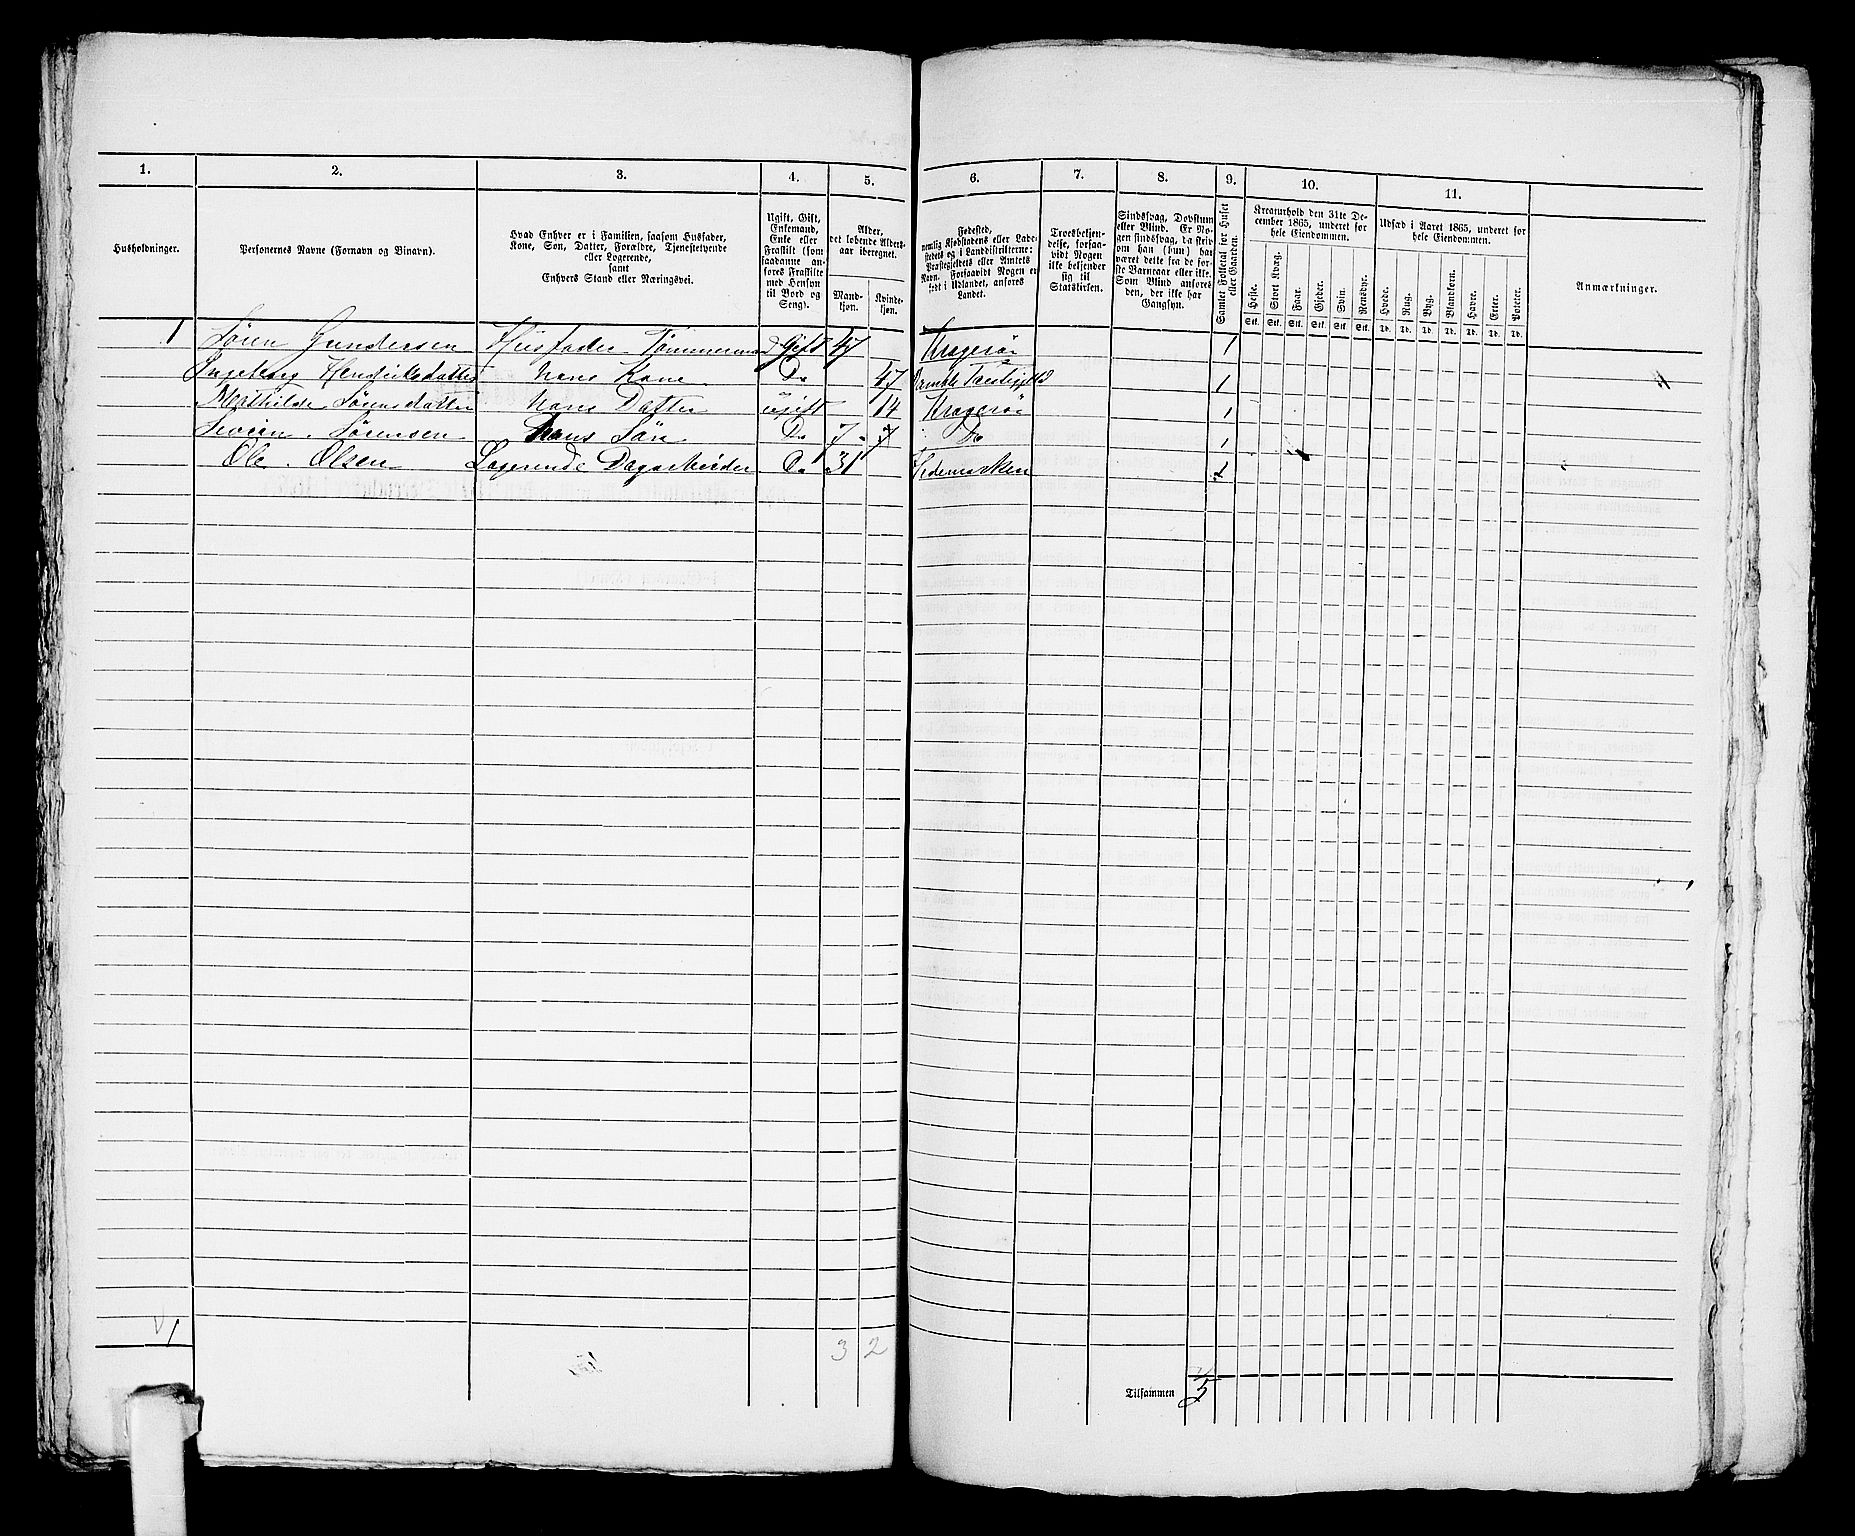 1. 2. 3. 4. 5. 6. 7. 8. 9. 10. 11.
Husholdninger.
Personernes Navne (Fornavn og Binavn).
Hvad Enhver er i Familien, saasom Husfader,
Kone, Søn, Datter, Forældre, Tjenestetyende
eller Logerende,
samt
Enhvers Stand eller Næringsvei.
Ugift, Gift,
Enkemand,
Enke eller
Fraskilt (som
saadanne an-
føres Fraskilte
med Hensyn
til Bord og
Seng).
Alder,
det løbende Alders-
aar iberegnet.
Mand-
kjøn.
Kvinde-
kjøn.
Fødested,
nemlig Kjøbstadens eller Lade-
stedets og i Landdistrikterne:
Præstegjeldets eller Amtets
Navn. Forsaavidt Nogen er
født i Udlandet, anføres
Landet.
Troesbekjen-
delse, forsaa-
vidt Nogen
ikke bekjender
sig til
Statskirken.
Sindssvag, Døvstum
eller Blind. Er No-
gen sindssvag, da skriv
om han (hun) har
været dette fra de før-
ste Barneaar eller ikke.
Som Blind anføres
den, der ikke har
Gangsyn.
Samlet Folketal for Huset
eller Gaarden.
Kreaturhold den 31te De-
cember 1865, underet for
hele Eiendommen.
Heste. Stort Kvæg. Faar. Gjeder. Svin. Rensdyr.
Stk. Stk. Stk. Stk. Stk. Stk.
Udsæd i Aaret 1865, underet for
hele Eiendommen.
Hvede. Rug. Byg. Blandkorn. Havre. Erter. Poteter.
Td. Td. Td. Td. Td. Td. Td.
Anmærkninger.
1 Sören Gundersen Husfader Tömmermand Gift 47 Kragerön 1
Ingeborg Hendriksdatter hans Kone Do 47 Bamble Præstegjeld 1
Mathilde Sörensdatter hans Datter ugift 14 Kragerön 1
Sörensen hans Sön Do 7 Do 1
Ole Olsen Logerende Dagarbeider Do 31 Hedemarken 1
1
3 2
Tilsammen 5